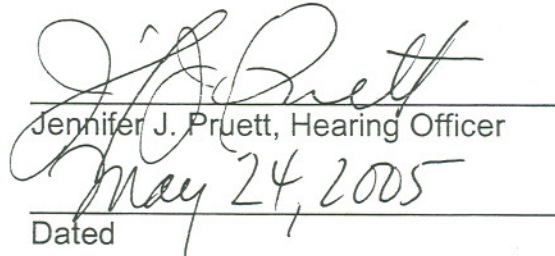 J J Pruett
Jennifer J. Pruett, Hearing Officer
May 24, 2005
Dated